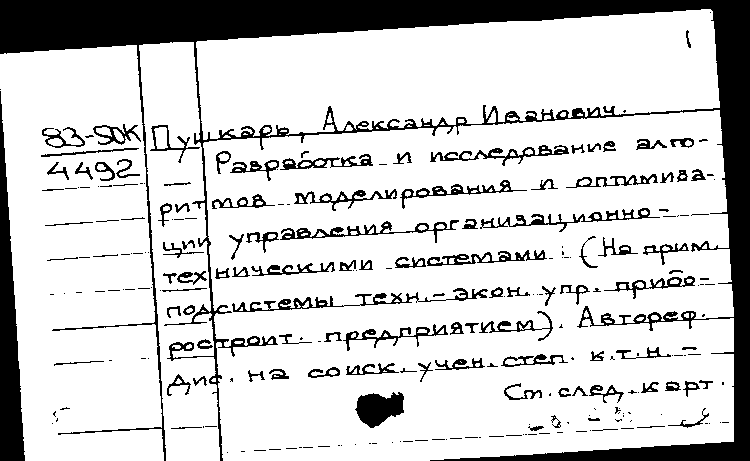 1
83-50К Пушкарь, Александр Иванович.
4492 Разработка и исследование алго-
ритмов моделирования и оптимиза-
ции управления организационно-
техническими системами : (На прим.
подсистемы техн.-экон. упр. прибо-
ростроит. предприятием). Автореф.
Дис. на соиск. учен. степ. к.т.н. -
См. след. карт.